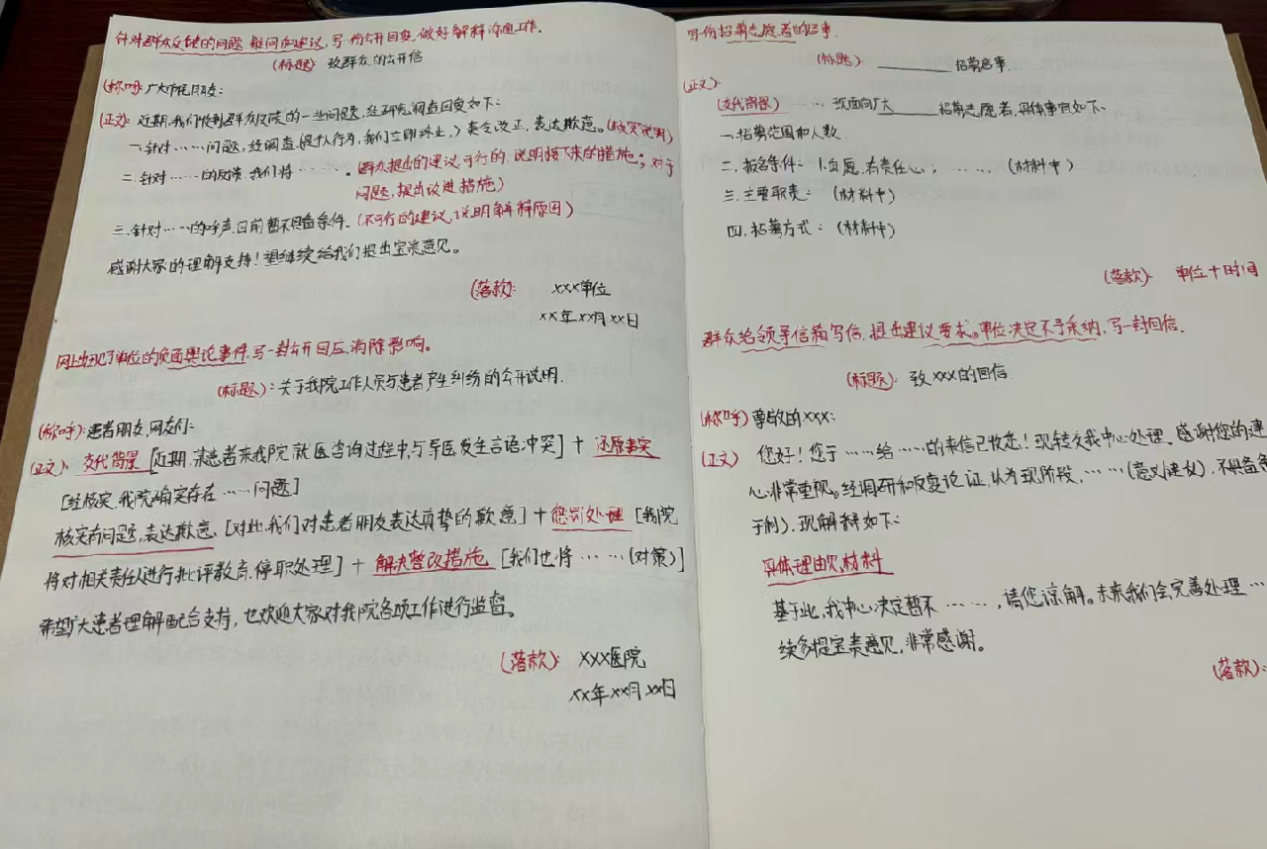 针对群众反映的问题、疑问和建议,写一份公开回复,做好解释沟通工作.
(标题): 致群众的公开信
(称呼) 广大市民朋友:
(正文): 近期,我们收到群众反映的一些问题,经研究调查回复如下:
一.针对……问题,经调查,(是个人行为,我们立即终止,)责令改正,表达歉意。(核实说明)
二.针对……的反馈,我们将……。群众提出的建议,可行的,说明接下来的措施;对于
问题,提出改进措施)
三.针对……的呼声,目前暂不具备条件.(不可行的建议,说明解释原因)
感谢大家的理解支持!望继续给我们提出宝贵意见。
(落款): xxx单位
xx年xx月xx日
网上出现了单位的负面舆论事件,写一封公开回应,消除影响。
(标题):关于我院工作人员与患者产生纠纷的公开说明.
(称呼):患者朋友、网友们:
(正文): 交代背景[近期,某患者来我院就医咨询过程中,与导医发生言语冲突]+还原事实
[经核实,我院确实存在……问题]
核实有问题,表达歉意.[对此,我们对患者朋友表达真挚的歉意]+惩罚处理[我院
将对相关责任人进行批评教育、停职处理]+解决整改措施[我们也将……(对策)]
希望广大患者理解配合支持,也欢迎大家对我院各项工作进行监督。
(落款): XXX医院
xx年xx月xx日
写份招募志愿者的启事.
(标题): ________招募启事.
(正文):
(交代背景)……现面向广大______招募志愿者,具体事宜如下:
一.招募范围和人数
二.报名条件: 1.自愿、有责任心;……(材料中)
三.主要职责: (材料中)
四.招募方式: (材料中)
(落款): 单位+时间
群众给领导信箱写信,提出建议要求。单位决定不予采纳,写一封回信.
(标题): 致xxx的回信
(称呼) 尊敬的xxx:
(正文) 您好!您于……给……的来信已收悉!现转交我中心处理,感谢您的建
心非常重视。经调研和反复论证,认为现阶段,……(意义/建议),不具备条
于利),现解释如下:
具体理由见材料
基于此,我中心决定暂不……,请您谅解。未来我们会完善处理…
续多提宝贵意见,非常感谢。
(落款):